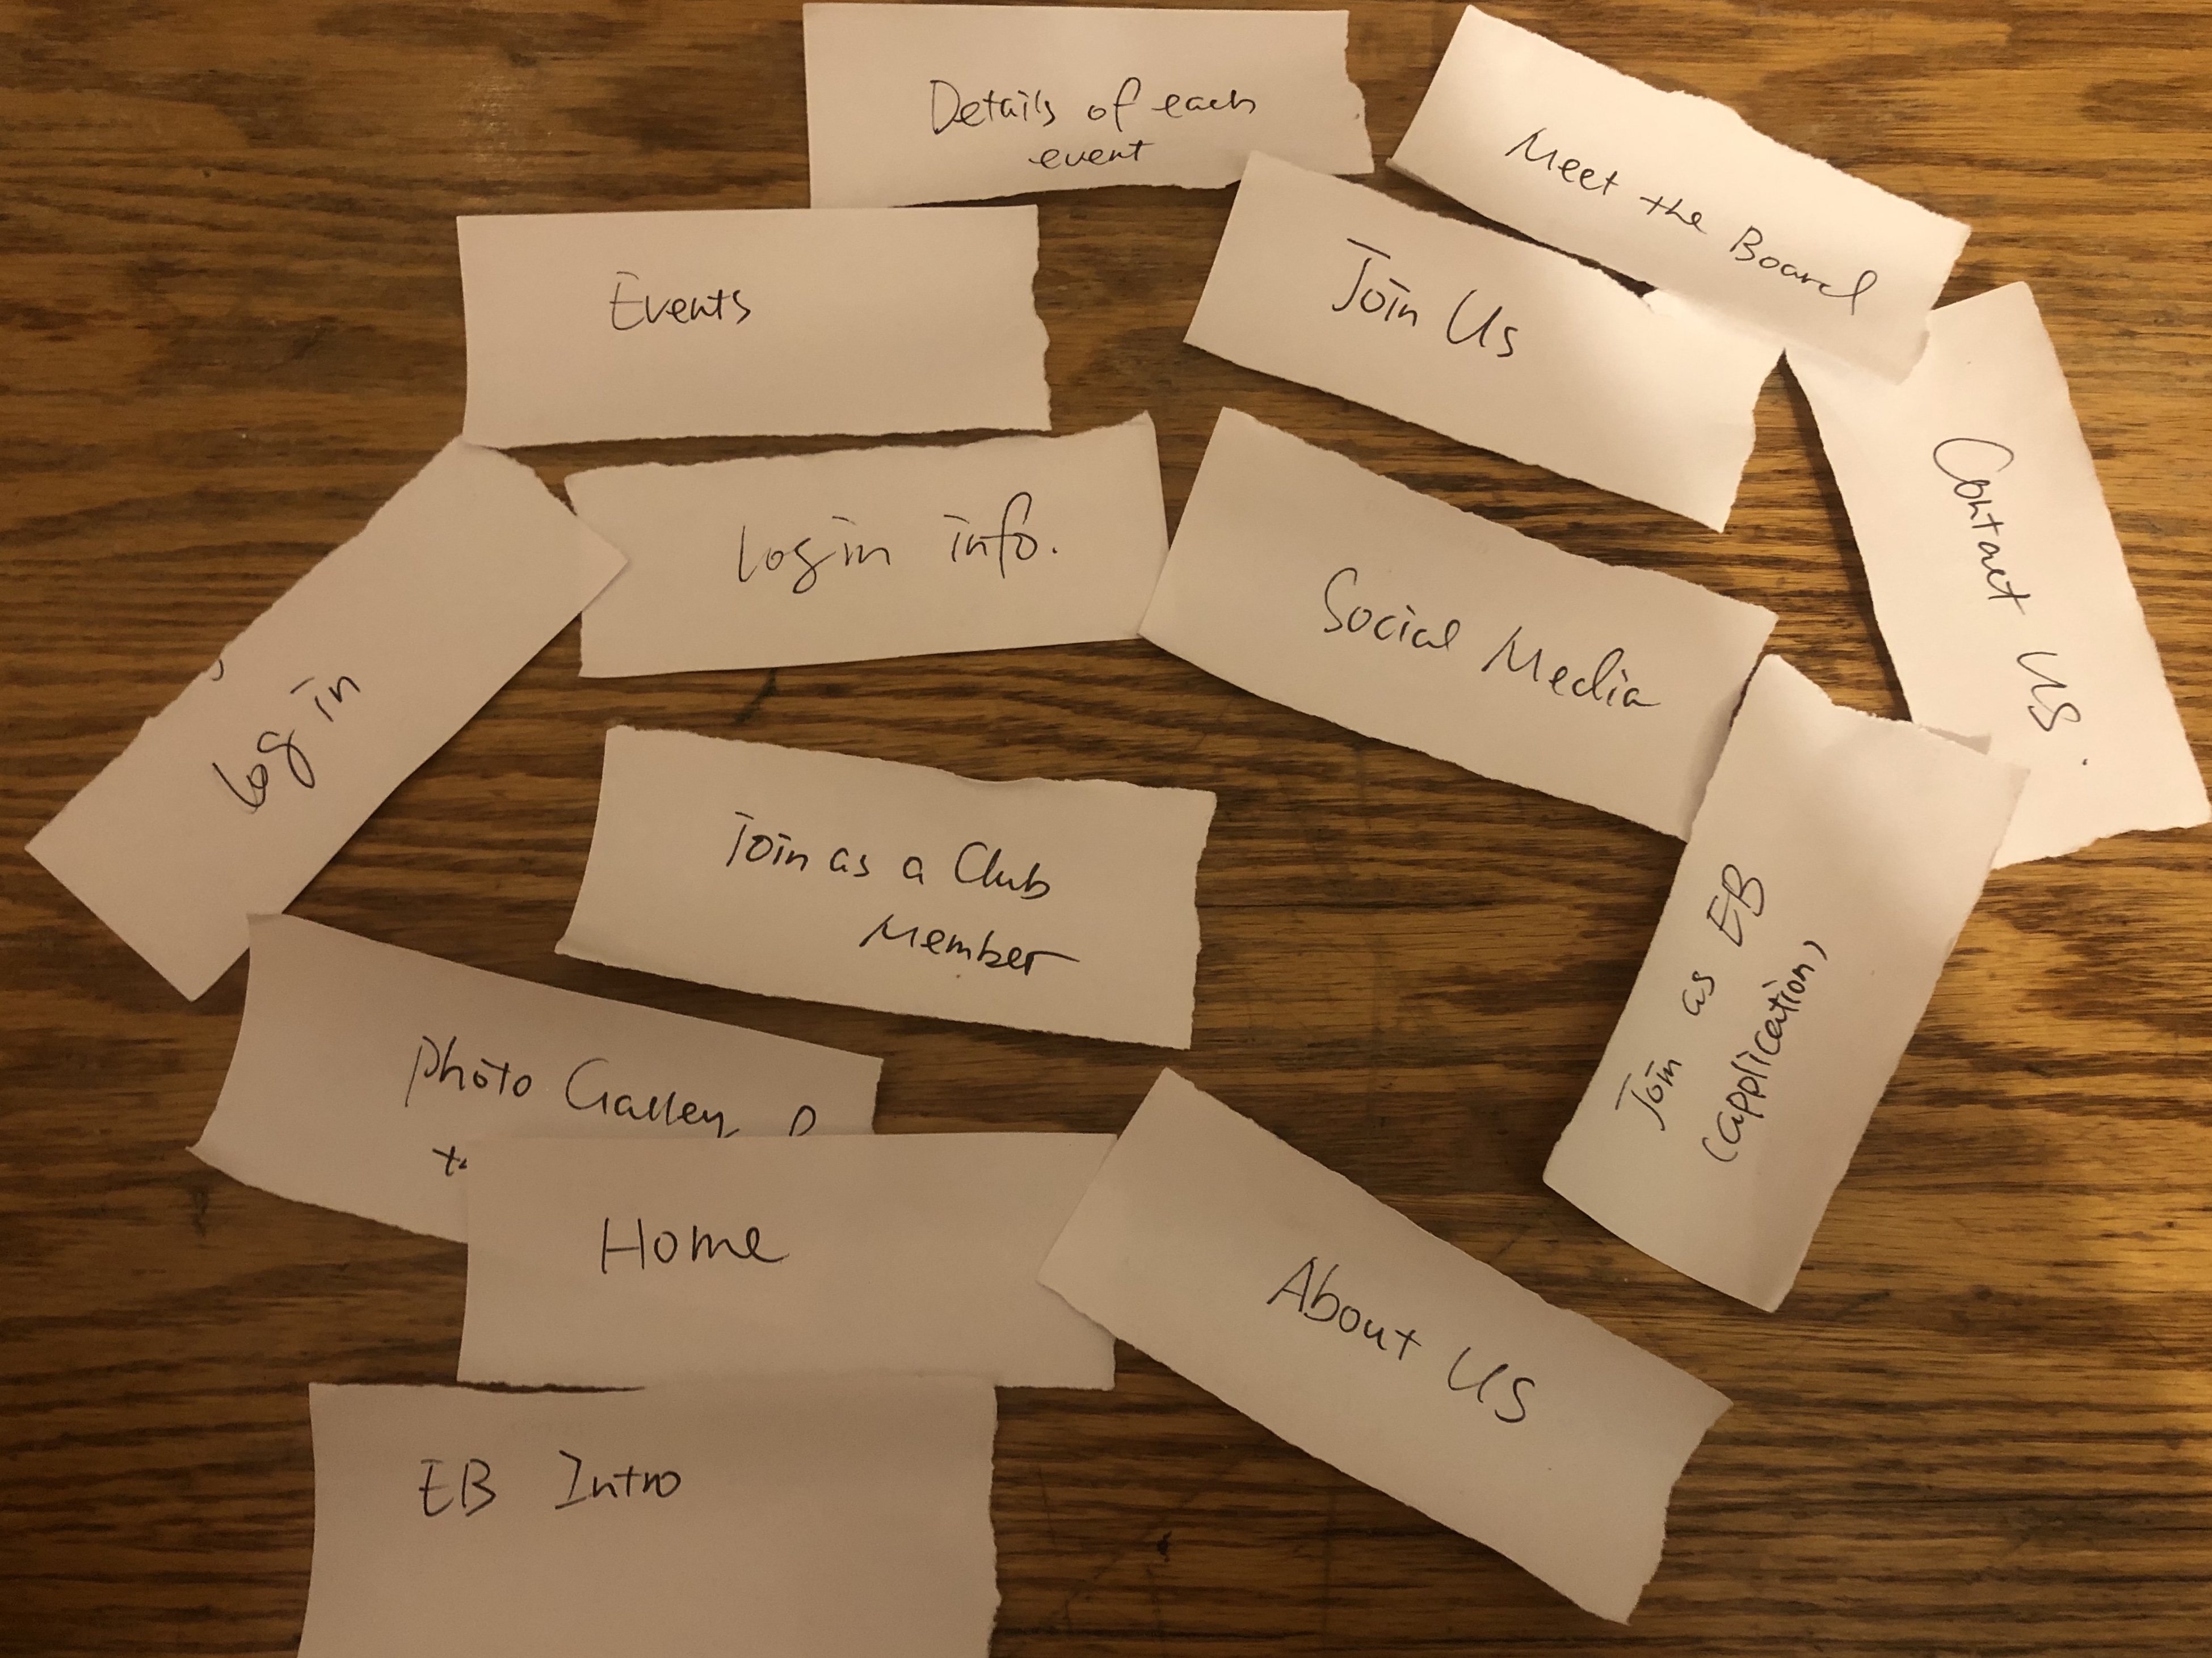 Details of each
event
Meet the Board
Events
Join Us
Contact Us.
Login info.
Social Media
Log in
Join as a Club
Member
Join as EB
(application)
Photo Gallery
Home
About US
EB Intro